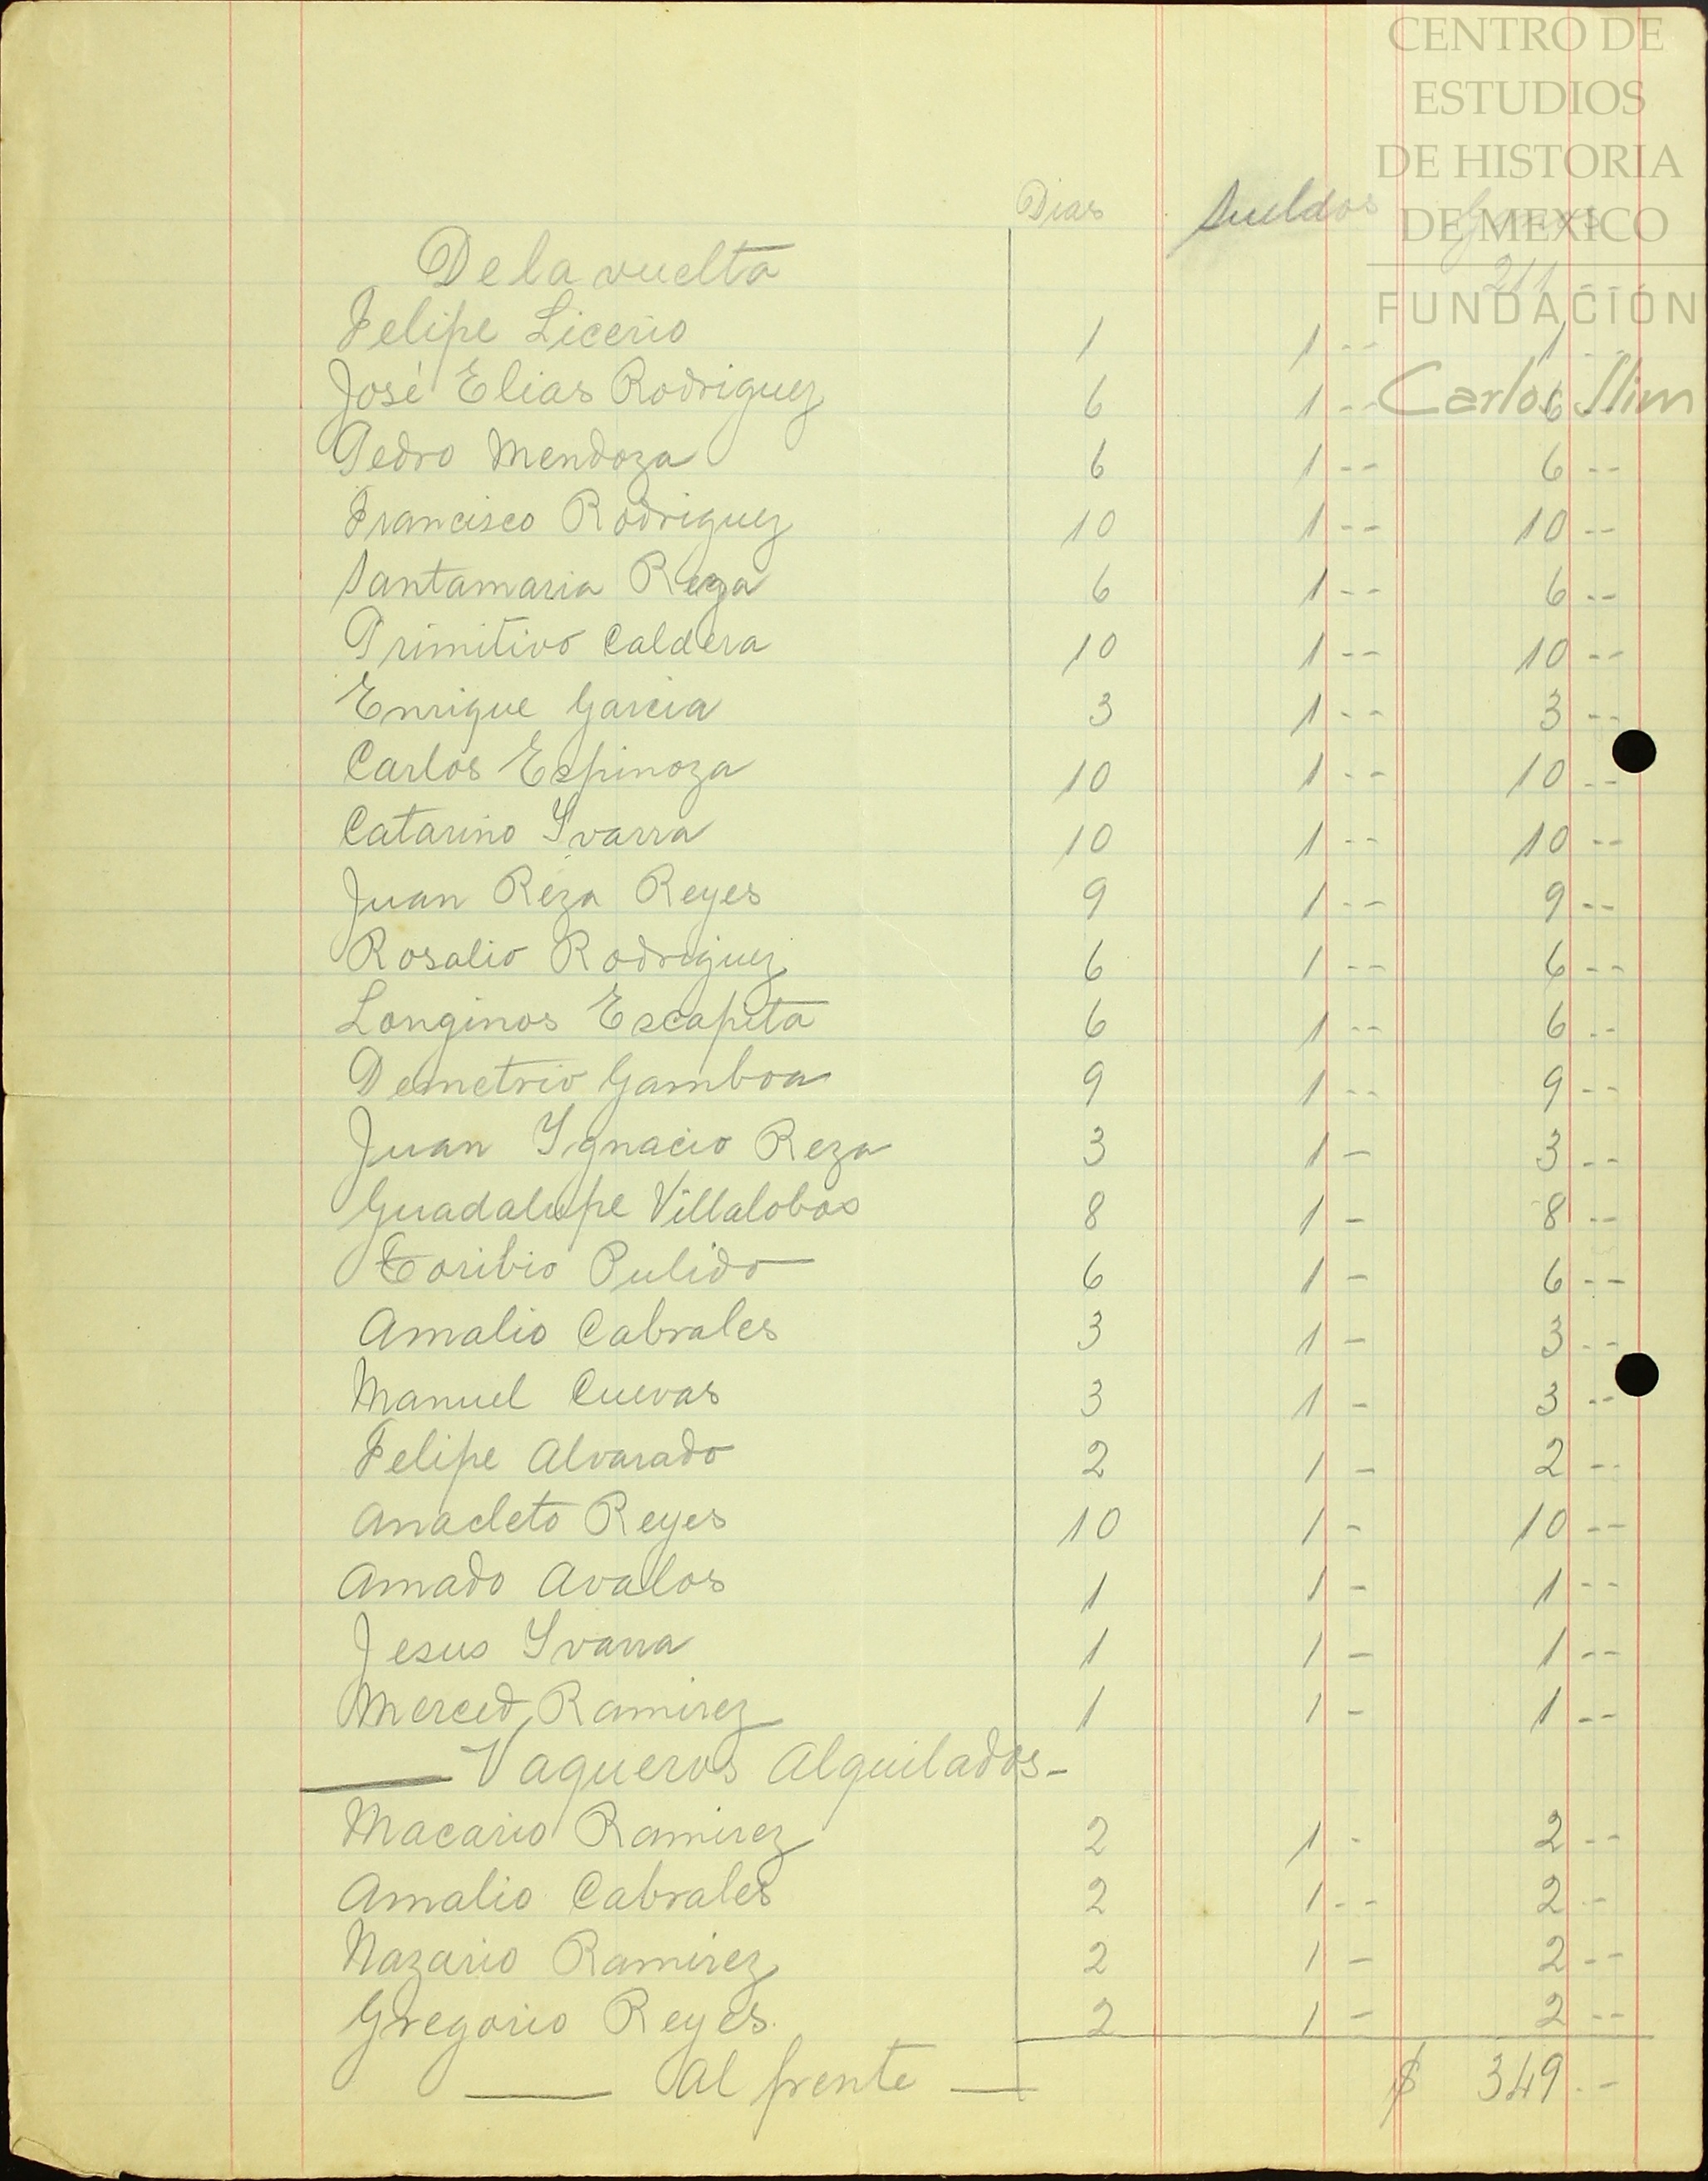 CENTRO DE
ESTUDIOS
DE HISTORIA
DE MEXICO
FUNDACIÓN
Carlos Slim
Dias Sueldos
De la vuelta 211 --
Felipe Licerio 1 1 -- 1 --
José Elias Rodriguez 6 1 -- 6 --
Pedro Mendoza 6 1 -- 6 --
Francisco Rodriguez 10 1 -- 10 --
Santamaria Reza 6 1 -- 6 --
Primitivo Caldera 10 1 -- 10 --
Enrique Garcia 3 1 -- 3 --
Carlos Espinoza 10 1 -- 10 --
Catarino Yvarra 10 1 -- 10 --
Juan Reza Reyes 9 1 -- 9 --
Rosalio Rodriguez 6 1 -- 6 --
Longinos Escapita 6 1 -- 6 --
Demetrio Gamboa 9 1 -- 9 --
Juan Ygnacio Reza 3 1 - 3 --
Guadalupe Villalobos 8 1 - 8 --
Toribio Pulido 6 1 - 6 --
Amalio Cabrales 3 1 - 3 --
Manuel Cuevas 3 1 - 3 --
Felipe Alvarado 2 1 - 2 --
Anacleto Reyes 10 1 - 10 --
Amado Avalos 1 1 - 1 --
Jesus Yvarra 1 1 - 1 --
Merced Ramirez 1 1 - 1 --
Vaqueros Alquilados-
Macario Ramirez 2 1 - 2 --
Amalio Cabrales 2 1 -- 2 --
Nazario Ramirez 2 1 - 2 --
Gregorio Reyes. 2 1 - 2 --
Al frente $ 349 --